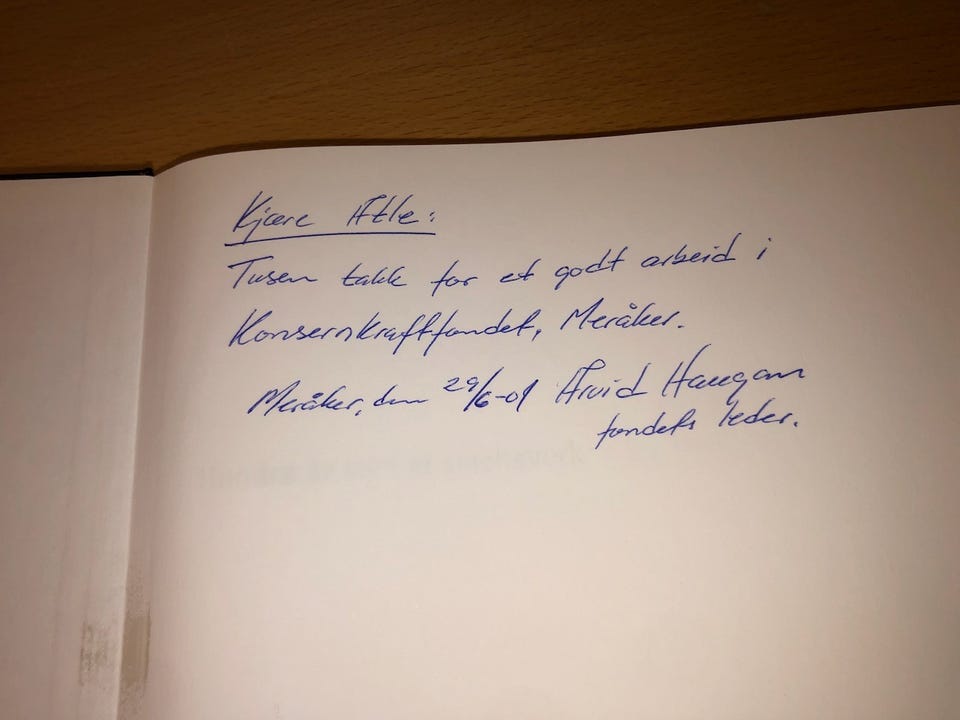 Kjære Atle:
Tusen takk for et godt arbeid i
Konsernkraftfondet, Meråker.
Meråker, den 29/6-01 Arvid Haugan
fondets leder.